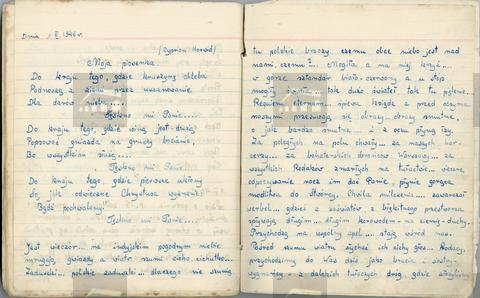 Dnia 1 X. 1946 r.
(Cyprian Norwid)
Moja piosenka.
Do kraju tego, gdzie kruszynę chleba
Podnoszą z ziemi przez uszanowanie
Dla darów nieba....
Tęskno mi Panie...
Do kraju tego, gdzie winą jest dużą
Popsować gniazdo na gruszy bocianie,
Bo wszystkim służą....
Tęskno mi Panie...
Do kraju tego, gdzie pierwsze ukłony
Są jak odwieczne Chrystusa wyznanie:
Bądź pochwalony!
Tęskno mi Panie....
Jest wieczór... na indyjskim pogodnym niebie
mrugają gwiazdy a wiatr szumi cicho, cichutko...
Zaduszki... polskie zaduszki... dlaczego nie szumią
tu polskie brzozy, czemu obce niebo jest nad
nami, czemu?... Mogiła a na niej krzyż...
w górze sztandar biało-czerwony a u stóp
mogiły światła... tak dużo świateł tak tu pięknie...
Requiem eternam... śpiewa ksiądz a przed oczyma
naszymi przesuwają się obrazy - obrazy smutne,
o jak bardzo smutne... i z oczu płyną łzy.
Za poległych na polu chwały... za naszych har-
cerzy... za bohaterskich obrońców Warszawy... za
wszystkich Rodaków zmarłych na tułactwie... wieczne
odpoczywanie racz im dać Panie, płynie gorąca
modlitwa do Stwórcy. Chwila milczenia... zawarczał
werbel... gdzieś z zaświatów, z błękitnego przestworza
spływają długim... długim korowodem - na ziemię - duchy.
Przychodzą na wspólny apel... stają wśród nas.
Pośród szumu wiatru słychać ich cichy głos... Rodacy,
przychodzimy do Was dziś jako bracia i siostry
wygnańcy - z dalekich tułaczych dróg, gdzie